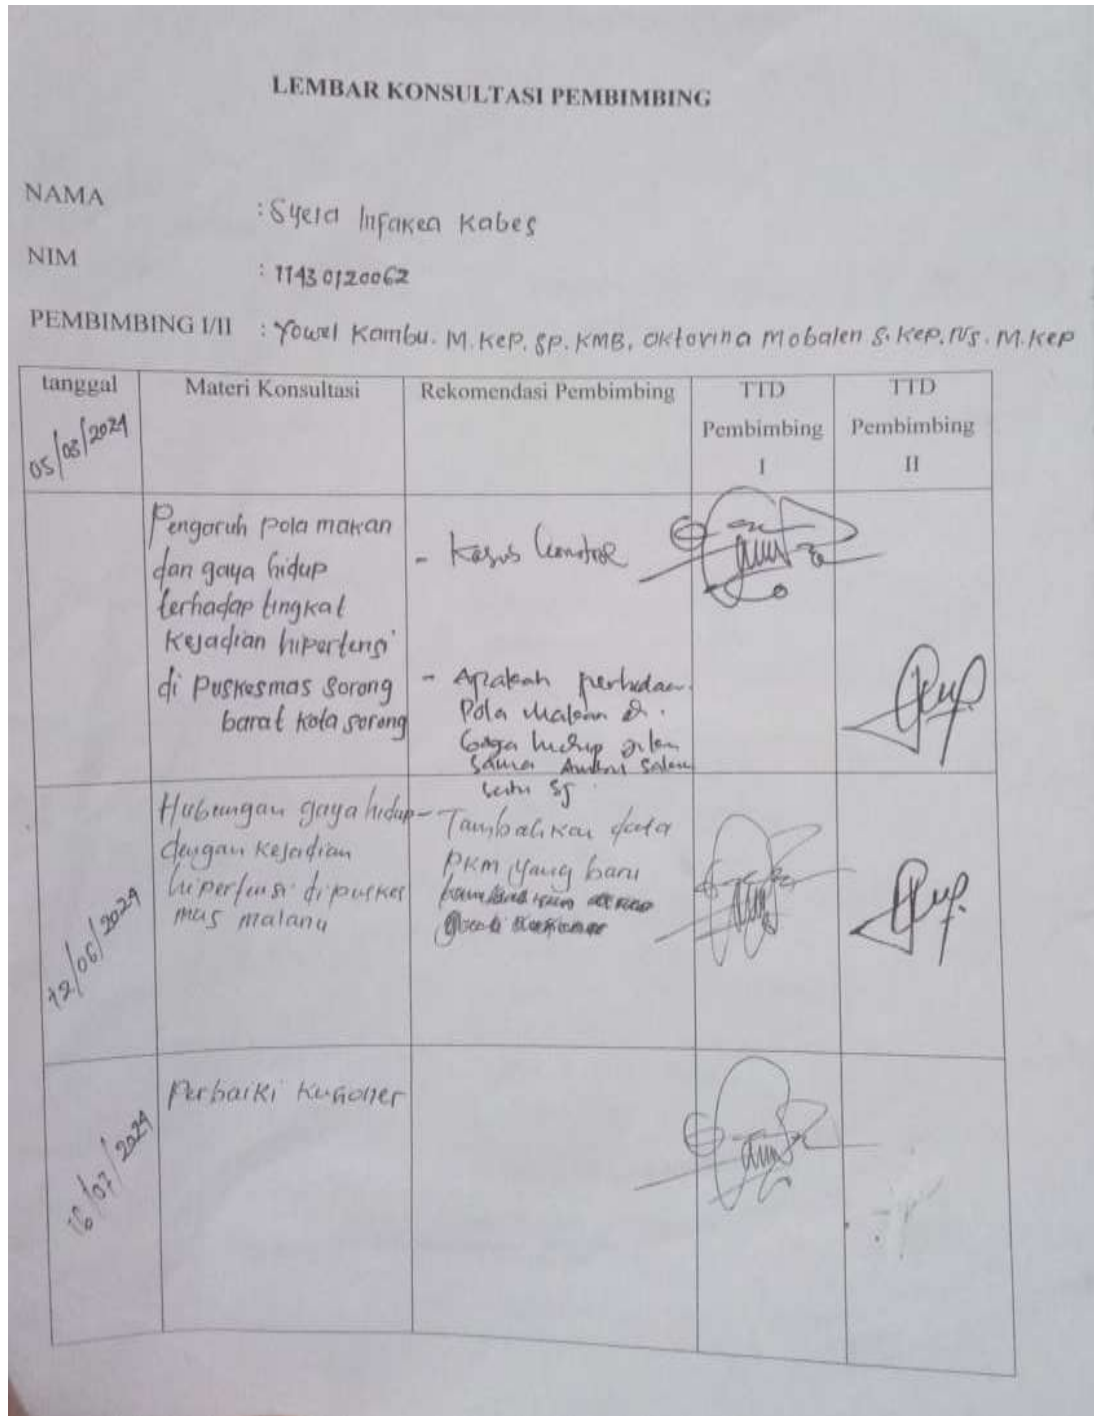 LEMBAR KONSULTASI PEMBIMBING
NAMA : Syera Infakea Kabes
NIM : 11430120062
PEMBIMBING I/II : Yowel Kambu. M.Kep. Sp. KMB, Oktovina Mobalen S. Kep. Ns. M. Kep
tanggal
05/03/2024
Materi Konsultasi
Rekomendasi Pembimbing
TTD
Pembimbing
I
TTD
Pembimbing
II
Pengaruh pola makan
dan gaya hidup
terhadap tingkat
kejadian hipertensi
di Puskesmas Sorong
barat kota sorong
- Kasus
- Apakah perbedaan
Pola makan
Gaya hidup
sama salah
satu sj
12/06/2024
Hubungan gaya hidup
dengan kejadian
hipertensi di puskes
mas malanu
- Tambahkan data
PKM yang baru
16/07/2024
Perbaiki Kusioner